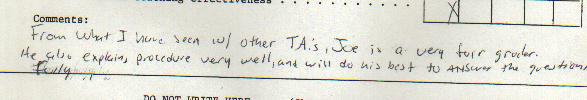 effectiveness . . . . . . . . . .
X
Comments:
From what I have seen w/ other TA's, Joe is a very fair grader.
He also explains procedure very well, and will do his best to answer the questions
fully
DO NOT WRITE HERE